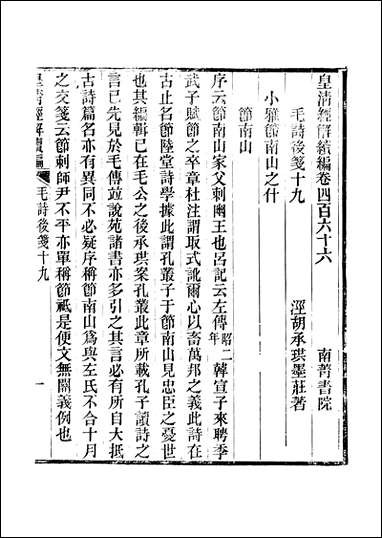 皇清經解續編卷四百六十六
南菁書院
毛詩後箋十九
涇胡承珙墨莊著
小雅節南山之什
節南山
序云節南山家父刺幽王也呂記云左傳昭二年韓宣子來聘季
武子賦節之卒章杜注謂取式訛爾心以畜萬邦之義此詩在
古止名節陸堂詩學據此謂孔叢子于節南山見忠臣之憂世
也其編輯已在毛公之後承珙案孔叢此章所載孔子讀詩之
言已先見於毛傳竝說苑諸書亦多引之其言必有所自大抵
古詩篇名亦有異同不必疑序稱節南山爲與左氏不合十月
之交箋云節刺師尹不平亦單稱節祗是便文無關義例也
皇清經解續編
毛詩後箋十九
一